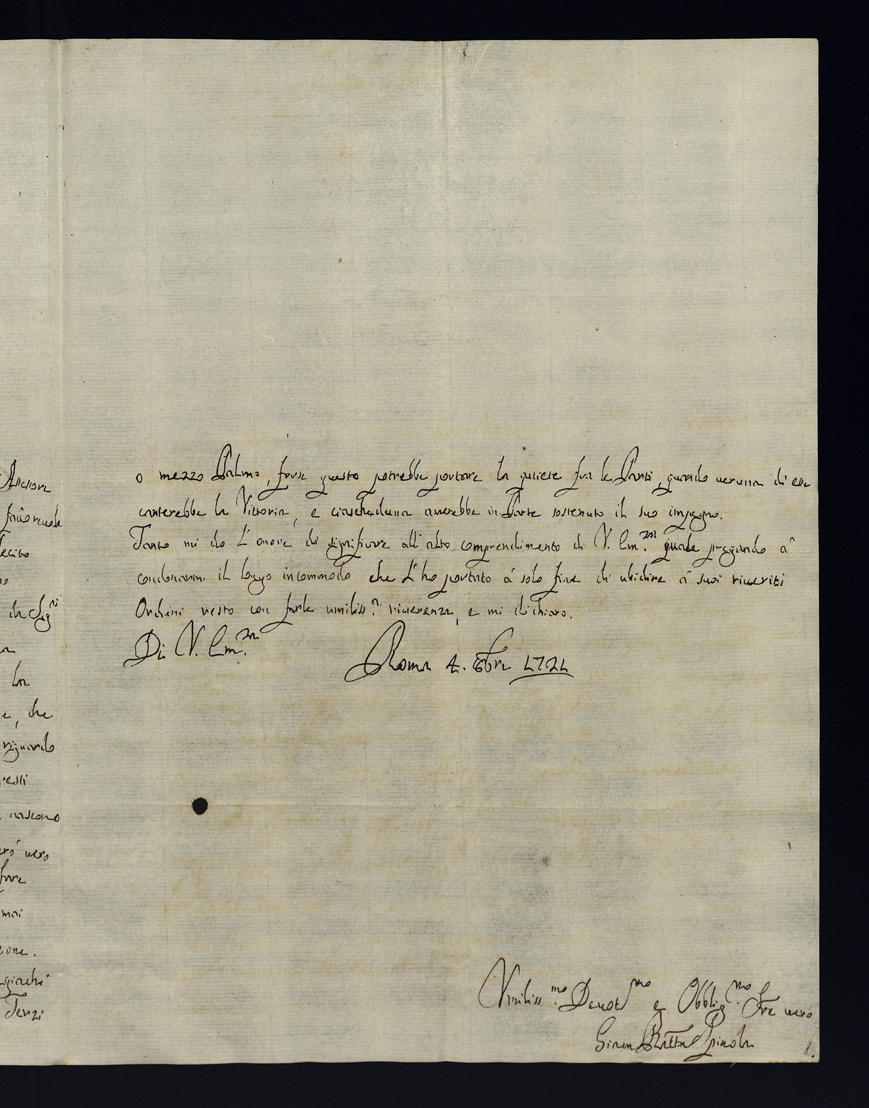 Ascesa
fauoreuole
lecito
no
che Sig.ri
la
e, che
riguardo
nascono
erò uero
fare
mai
ione.
Terzi
o mezzo Palmo, forse questo potrebbe portare la quiete fra le Parti, quando ueruna di esse
canterebbe la Vittoria, e ciascheduna auerebbe in Parte sostenuto il suo impegno.
Tanto mi do l'onore di significare all'alto comprendimento di V. Em.za quale pregando à
condonarmi il lungo incommodo che l'ho portato à solo fine di ubidire à suoi riueriti
Ordini resto con farle umiliss.a riuerenza, e mi dichiaro.
Di V. Em.za
Roma 4. 8bre 1721
Vmiliss.mo Deuot.mo e Obblig.mo Ser uero
Giovan Batta Spinola